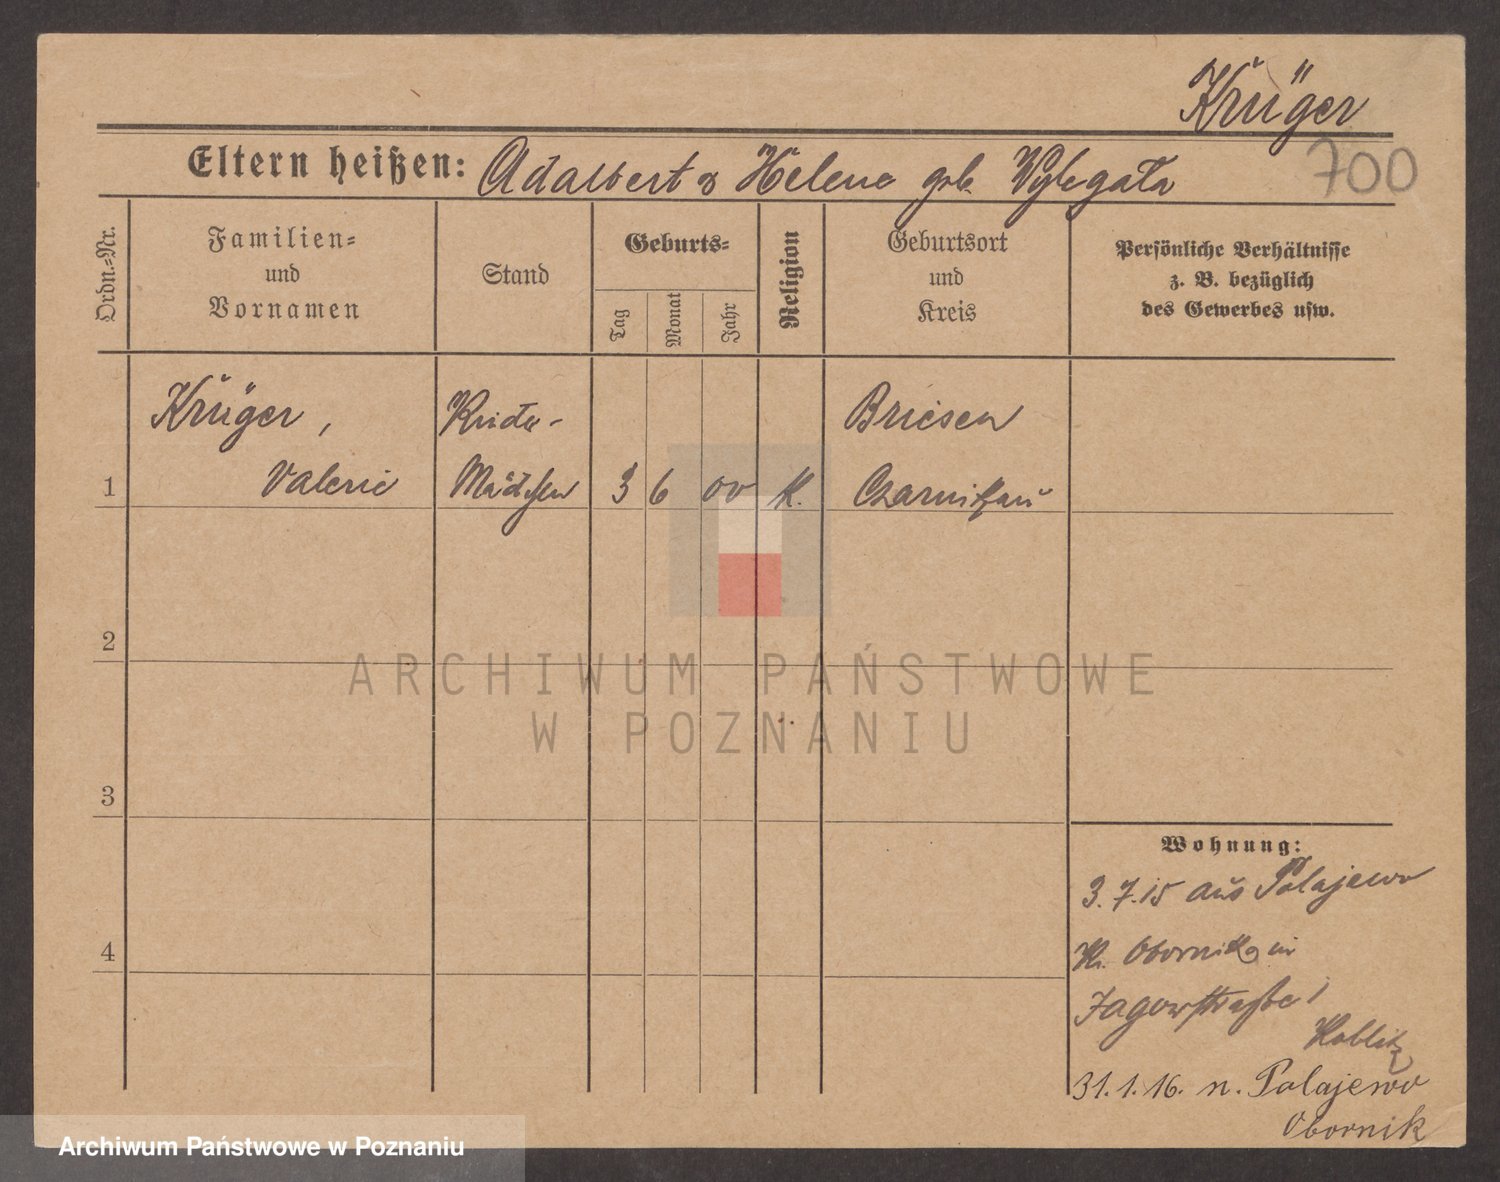 Krüger
Eltern heißen: Adalbert & Helene geb. Wylegala
700
Ordn.=Nr.
Familien=
und
Vornamen
Stand
Geburts=
Tag
Monat
Jahr
Religion
Geburtsort
und
Kreis
Persönliche Verhältnisse
z. B. bezüglich
des Gewerbes usw.
1
Krüger,
Valerie
Mädchen
3
6
00
K.
Briesen
Czarnikau
2
3
4
Wohnung:
3.7.15 aus Polajewo
Kr. Obornik in
Jagowstraße 1
31.1.16. n. Polajewo
Obornik
ARCHIWUM PAŃSTWOWE
W POZNANIU
Archiwum Państwowe w Poznaniu